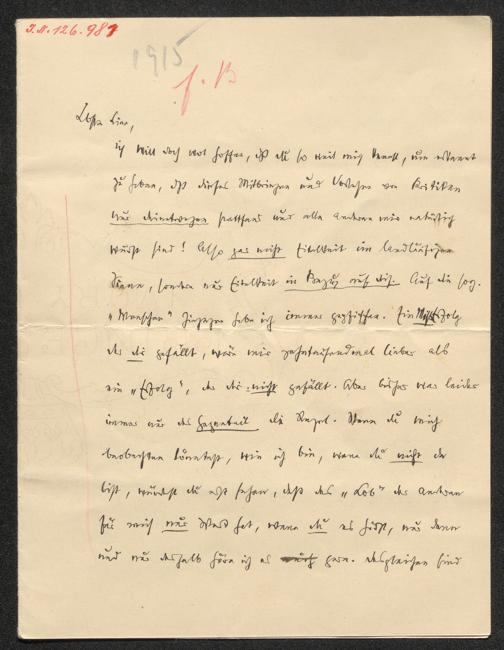 I.N. 126.987
1915
f. B
Liebste Lina,
ich will doch wol hoffen, daß du so weit mich kennst, um erkannt
zu haben, daß dieses Mitbringen und Vorlesen von Kritiken
nur deinetwegen stattfand und alle anderen mir natürlich
wurst sind! Also gar nicht Eitelkeit im landläufigen
Sinn, sondern nur Eitelkeit in Bezug auf dich. Auf die sog.
"Menschen" hingegen habe ich immer gepfiffen. Ein Mißerfolg
der dir gefällt, wäre mir zehntausendmal lieber als
ein "Erfolg", der dir nicht gefällt. Aber bisher war leider
immer nur das Gegenteil die Regel. Wenn du mich
beobachten könntest, wie ich bin, wenn du nicht da
bist, würdest du erst sehen, daß das "Lob" der anderen
für mich nur Wert hat, wenn du es hörst, nur dann
und nur deshalb höre ich es gern. desgleichen sind